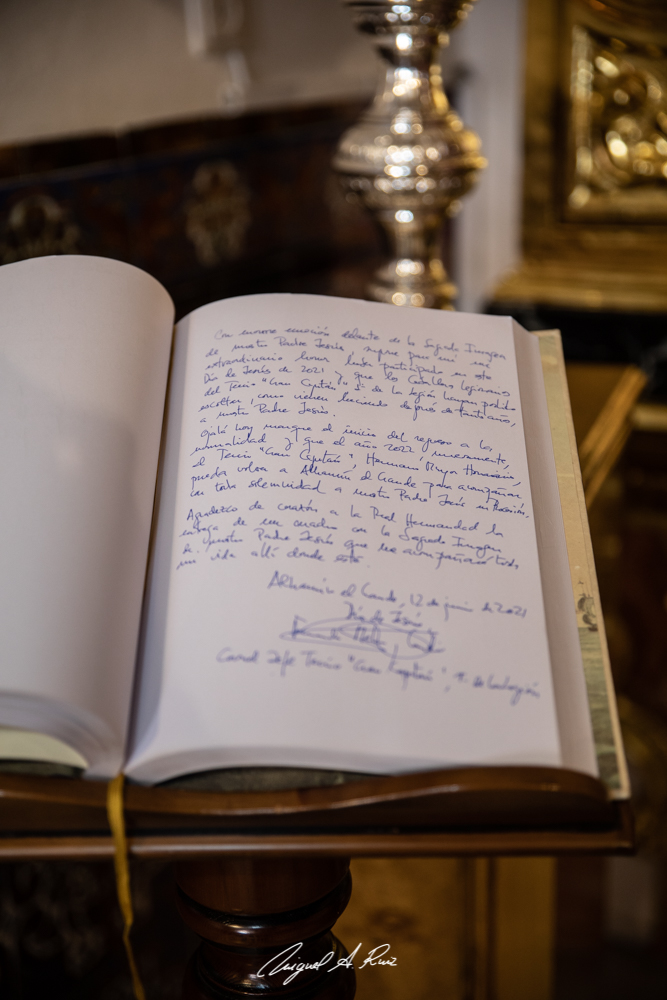 Con enorme emoción delante de la Sagrada Imagen
de nuestro Padre Jesús, supone para mí un
extraordinario honor haber participado en este
Día de Jesús de 2021 y que los Caballeros Legionarios
del Tercio "Gran Capitán" 1º de la Legión hayan podido
escoltar, como vienen haciendo después de tantos años,
a nuestro Padre Jesús.
Ojalá hoy marque el inicio del regreso a la
normalidad y que el año 2022, nuevamente,
el Tercio "Gran Capitán", Hermano Mayor Honorario,
pueda volver a Alhaurín el Grande para acompañar
con toda solemnidad a nuestro Padre Jesús en Procesión.
Agradezco de corazón a la Real Hermandad la
entrega de un cuadro con la Sagrada Imagen
de nuestro Padre Jesús que me acompañará toda
mi vida allí donde esté.
Alhaurín el Grande, 12 de junio de 2021
Día de Jesús
Coronel Jefe Tercio "Gran Capitán", 1º de La Legión
Miguel A. Ruiz